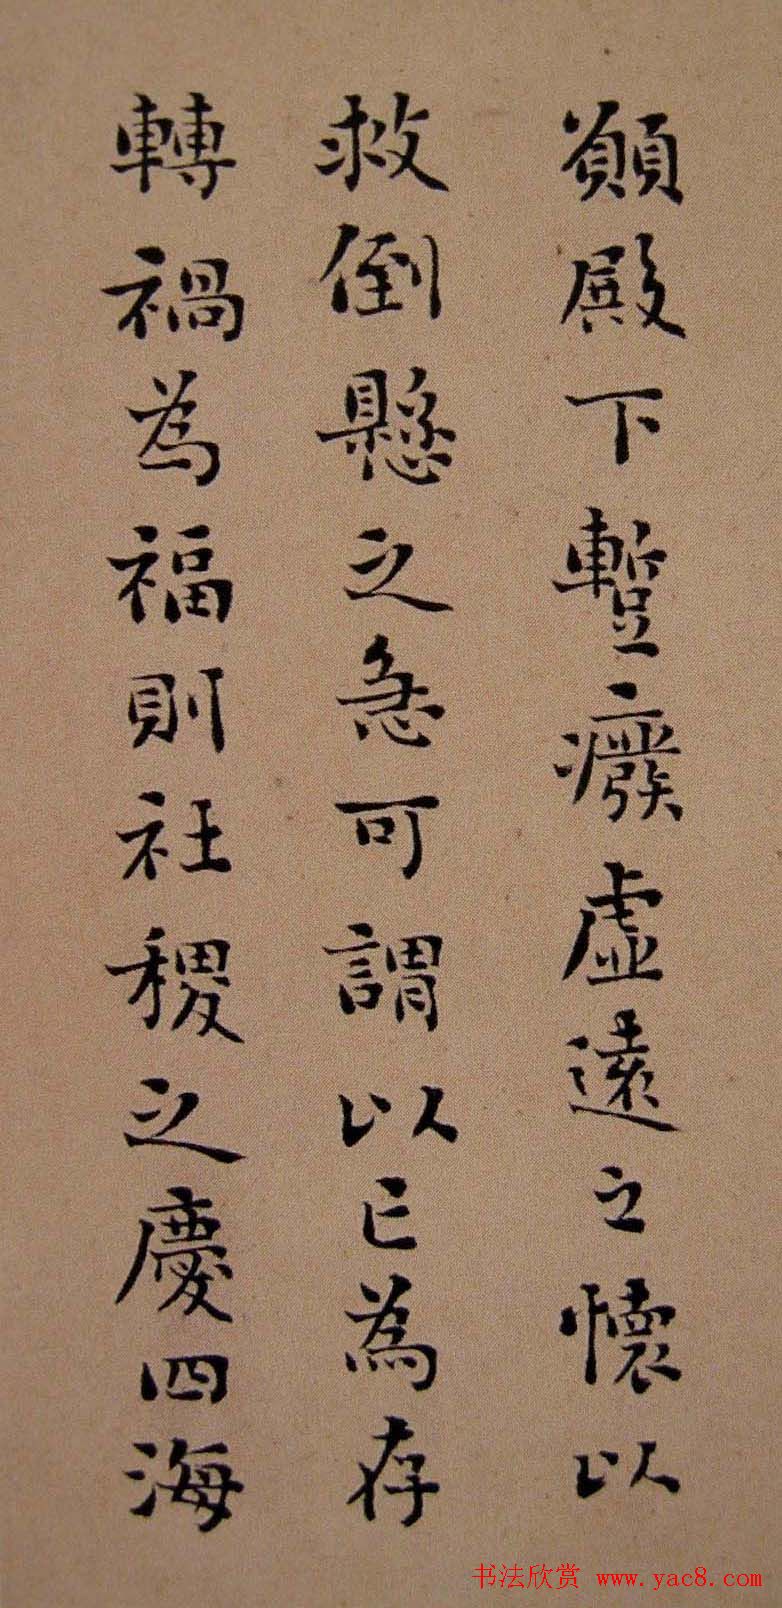 願殿下暫廢虛遠之懷以
救倒懸之急可謂以亡為存
轉禍為福則社稷之慶四海
书法欣赏 www.yac8.com